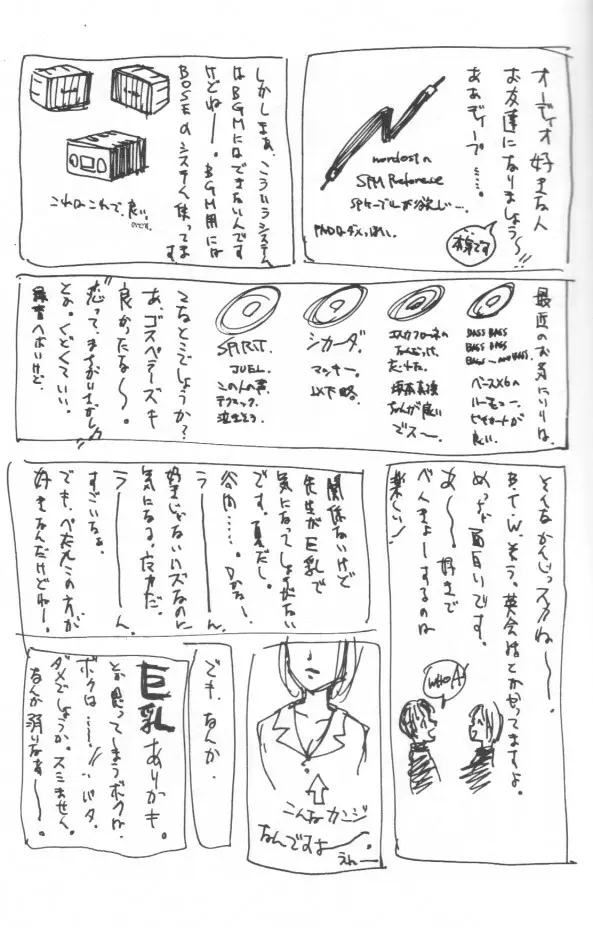 オーディオ好きな人
お友達になりましょう〜!!
ああディープ……。
本気です
nordostn
SPM Reference
SPケーブルが欲しー…。
しかしまあ、こういうシステム
はBGMにはできないんです
けどねー。BGM用には
BOSEのシステム使ってま
す
これはこれで、良い。
最近のお気にいりは、
BASS BASS
BASS BASS
ベース×6の
ハーモニー。
良い。
エスカフローネの
坂本真綾
ちゃんが良い
でスー。
シカーダ。
マッキー。
以下略
SPIRIT.
JUEL.
この人の声、
テクニック、
泣きそう。
こんなとこでしょうか?
あ、ゴスペラーズも
良かったな〜。
とか。くどくていい。
そんなかんじっスかねー。
B.T.W.そう。英会話とかやってますよ。
めっちゃ面白いです。
あ〜〜。好きで
べんきょーするのは
楽しい!
WHOA!
関係ないけど
先生が巨乳で
気になってしょうがない
です。夏だし。
谷間……。Dかなー。
うーーーん。
好きじゃないハズなのに
気になる。
うーーーん。
すごいなぁ。
でも、ぺたんこの方が
好きなんだけどねー。
こんなカンジ
なんですよー〜。
えへー
でも、なんか、
巨乳ありかも。
とか思ってしまうボクは、
ボクは……!!バタ。
ダメでしょうか。スミません。
なんか弱りなぁ〜〜。